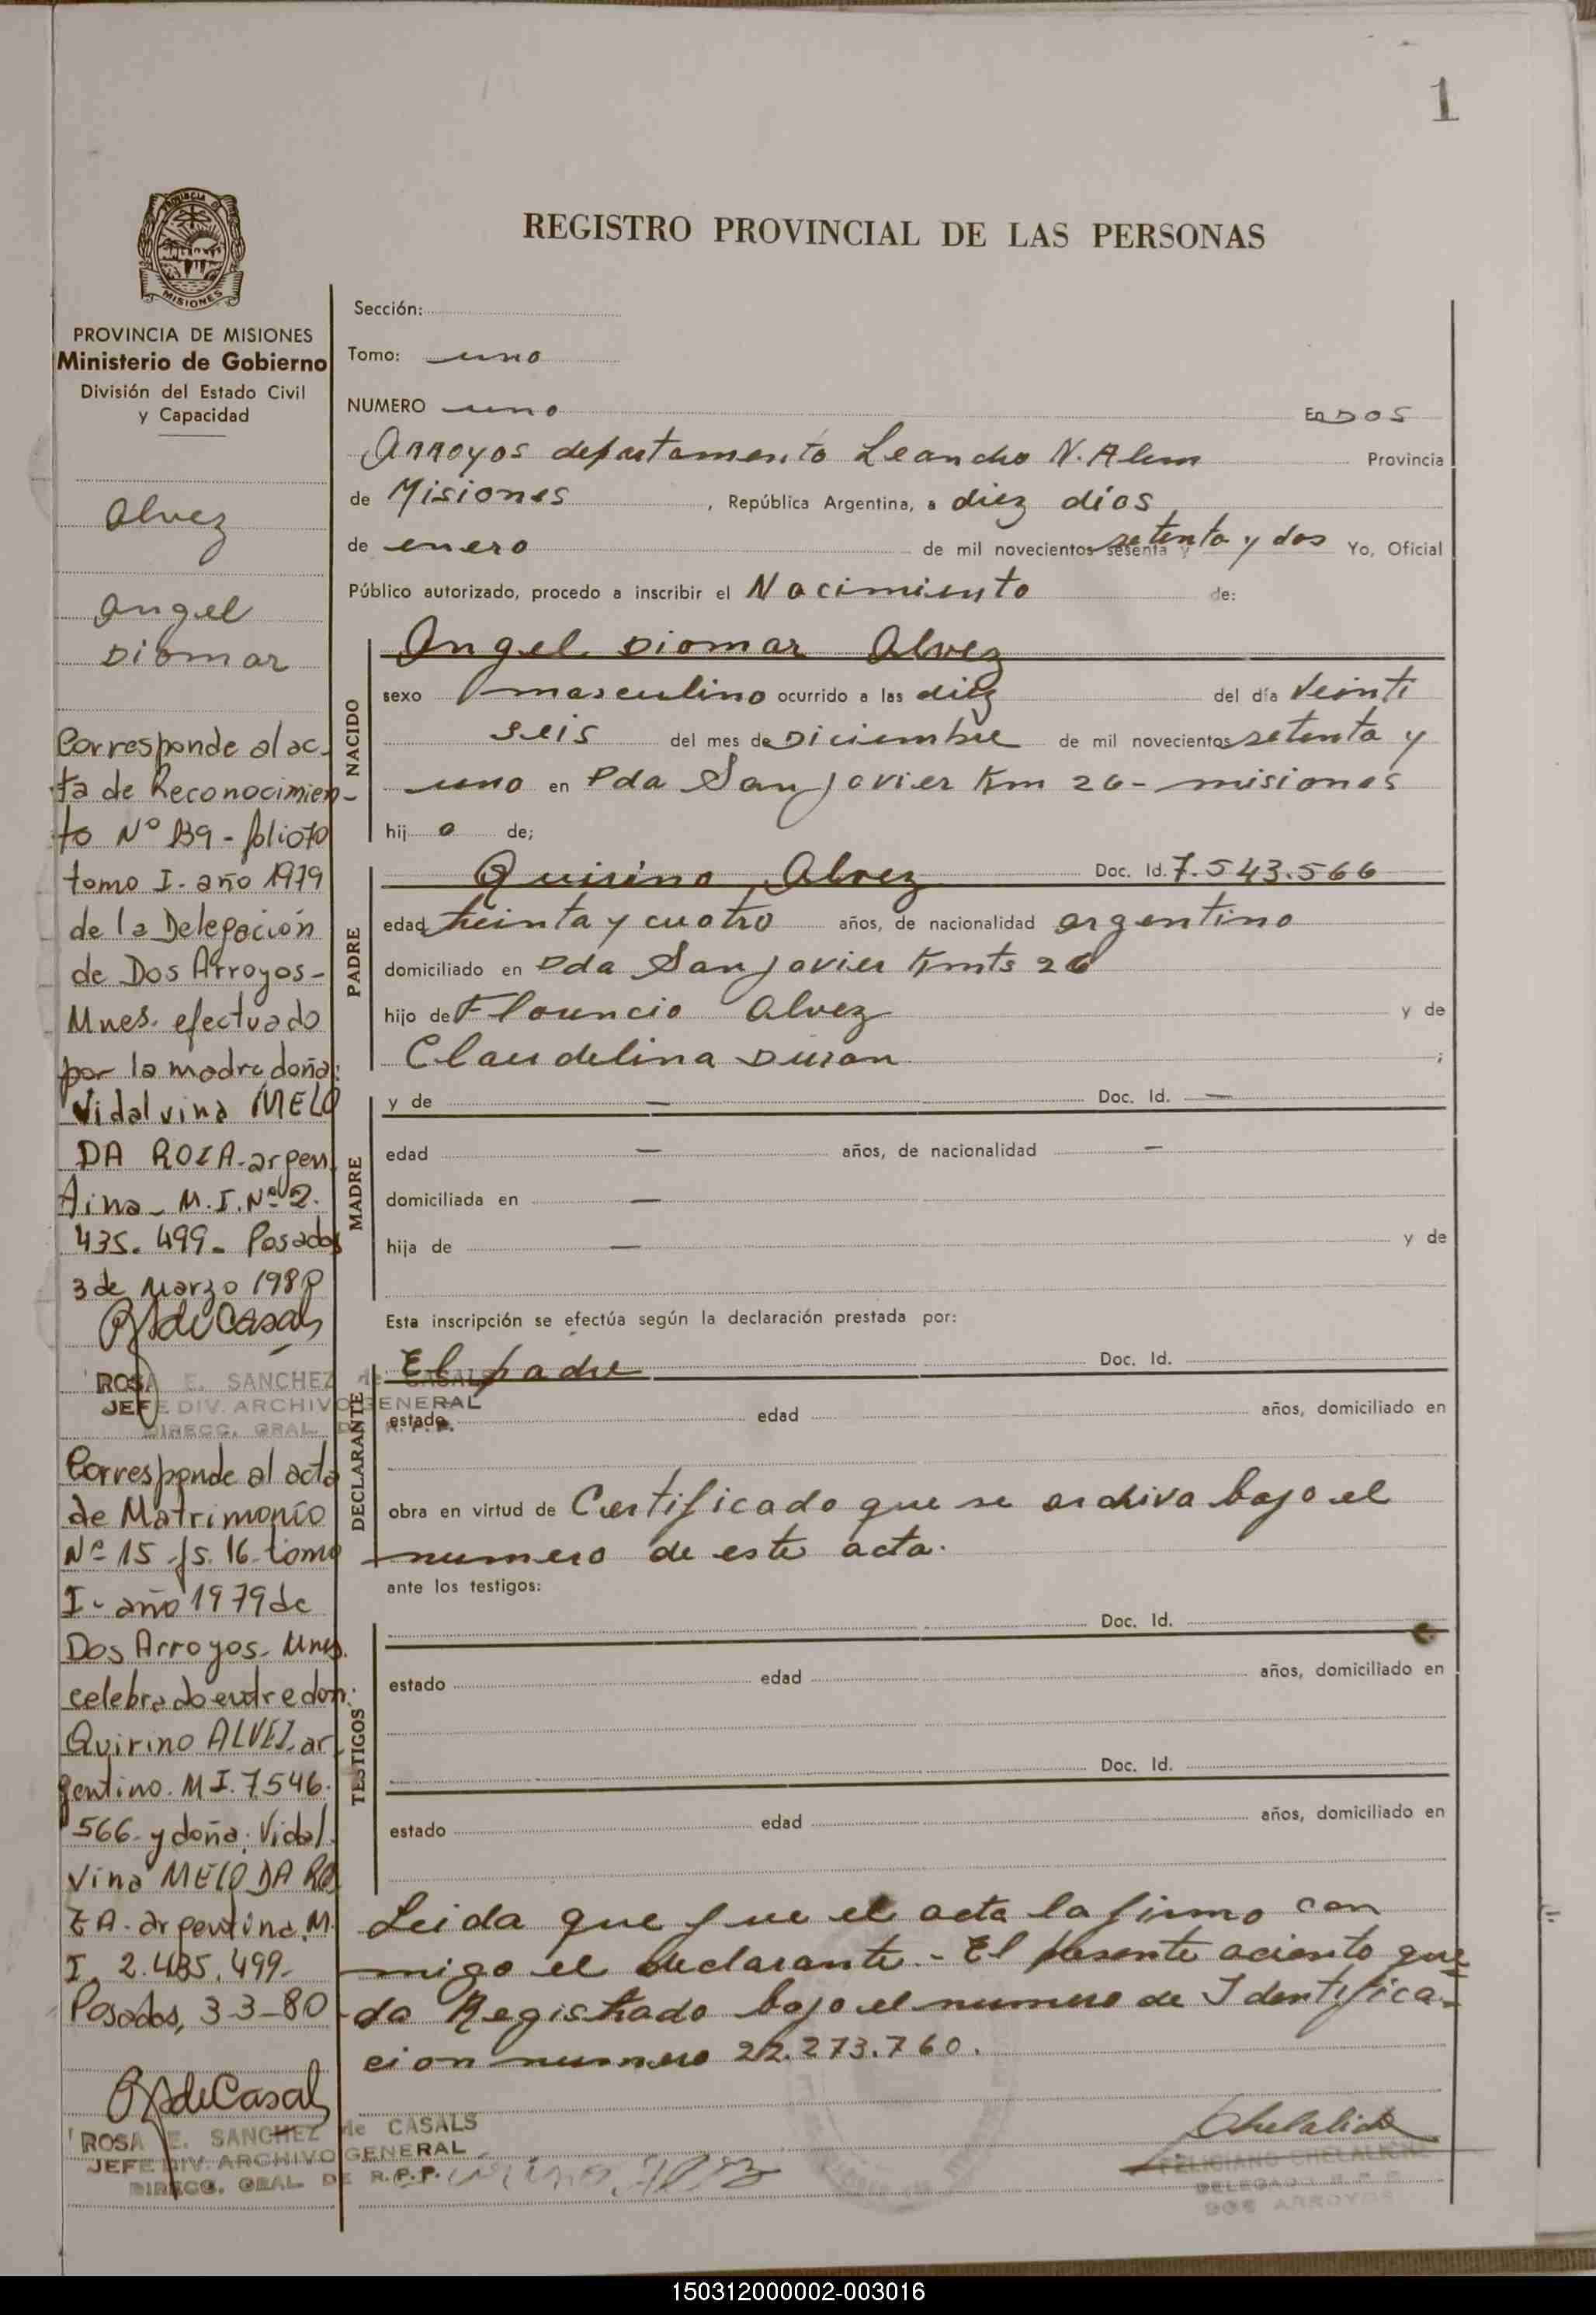 1
PROVINCIA DE MISIONES
REGISTRO PROVINCIAL DE LAS PERSONAS
PROVINCIA DE MISIONES
Ministerio de Gobierno
División del Estado Civil
y Capacidad
Alvez
Angel
Diomar
Corresponde al ac-
ta de Reconocimien-
to Nº 139 - folio 70
tomo I - año 1979
de la Delegación
de Dos Arroyos-
Mnes. efectuado
por la madre doña:
Vidalvina MELO
DA ROZA - argen
tina - M.I. Nº 2.
435.499 - Posadas
3 de Marzo 1980
RSdeCasals
ROSA E. SANCHEZ de CASALS
JEFE DIV. ARCHIVO GENERAL
DIRECC. GRAL. DE R.P.P.
Corresponde al acta
de Matrimonio
Nº 15 fs. 16 - tomo
I - año 1979 de
Dos Arroyos - Mnes.
celebrado entre don:
Quirino ALVEZ, ar-
gentino. M I. 7.546.
566 - y doña: Vidal
vina MELO DA RO
ZA - argentina. M.
I. 2.435.499 -
Posadas, 3-3-80
RSdeCasals
ROSA E. SANCHEZ de CASALS
JEFE DIV. ARCHIVO GENERAL
DIRECC. GRAL. DE R.P.P.
Sección:
Tomo: uno
NUMERO uno En DOS
Arroyos departamento Leandro N. Alem Provincia
de Misiones , República Argentina, a diez días
de enero de mil novecientos sesenta y setenta y dos Yo, Oficial
Público autorizado, procedo a inscribir el Nacimiento de:
NACIDO
Angel Diomar Alvez
sexo masculino ocurrido a las diez del día Veinti
seis del mes de Diciembre de mil novecientos setenta y
uno en Pda San Javier Km 26 - misiones
hij o de;
PADRE
Quirino Alvez Doc. Id. 7.543.566
edad treinta y cuatro años, de nacionalidad argentino
domiciliado en Pda San Javier Kmts 26
hijo de Florencio Alvez y de
Claudelina Duran ;
MADRE
y de — Doc. Id. —
edad — años, de nacionalidad —
domiciliada en —
hija de — y de
Esta inscripción se efectúa según la declaración prestada por:
DECLARANTE
El padre Doc. Id.
estado edad años, domiciliado en
obra en virtud de Certificado que se archiva bajo el
numero de este acta.
ante los testigos:
TESTIGOS
Doc. Id.
estado edad años, domiciliado en
Doc. Id.
estado edad años, domiciliado en
Leida que fue el acta la firmo con
migo el declarante. - El presente aciento que
da Registrado bajo el numero de Identifica-
cion numero 22.273.760.
Chelaliche
FELICIANO CHELALICHE
DELEGADO R.P.P.
DOS ARROYOS
150312000002-003016